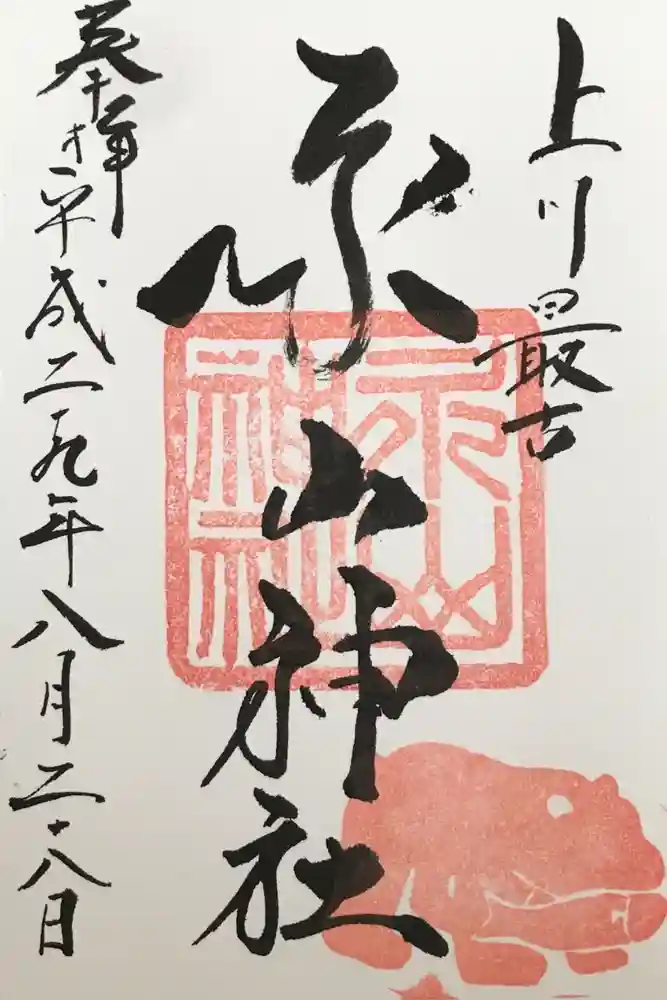 上川最古
永山神社
奉拝 平成二十九年八月二十八日
永山
神社